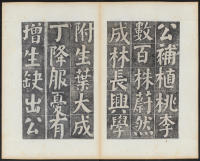 公補植桃李
數百株蔚然
成林長興學
附生葉大成
丁降服憂有
增生缺出公